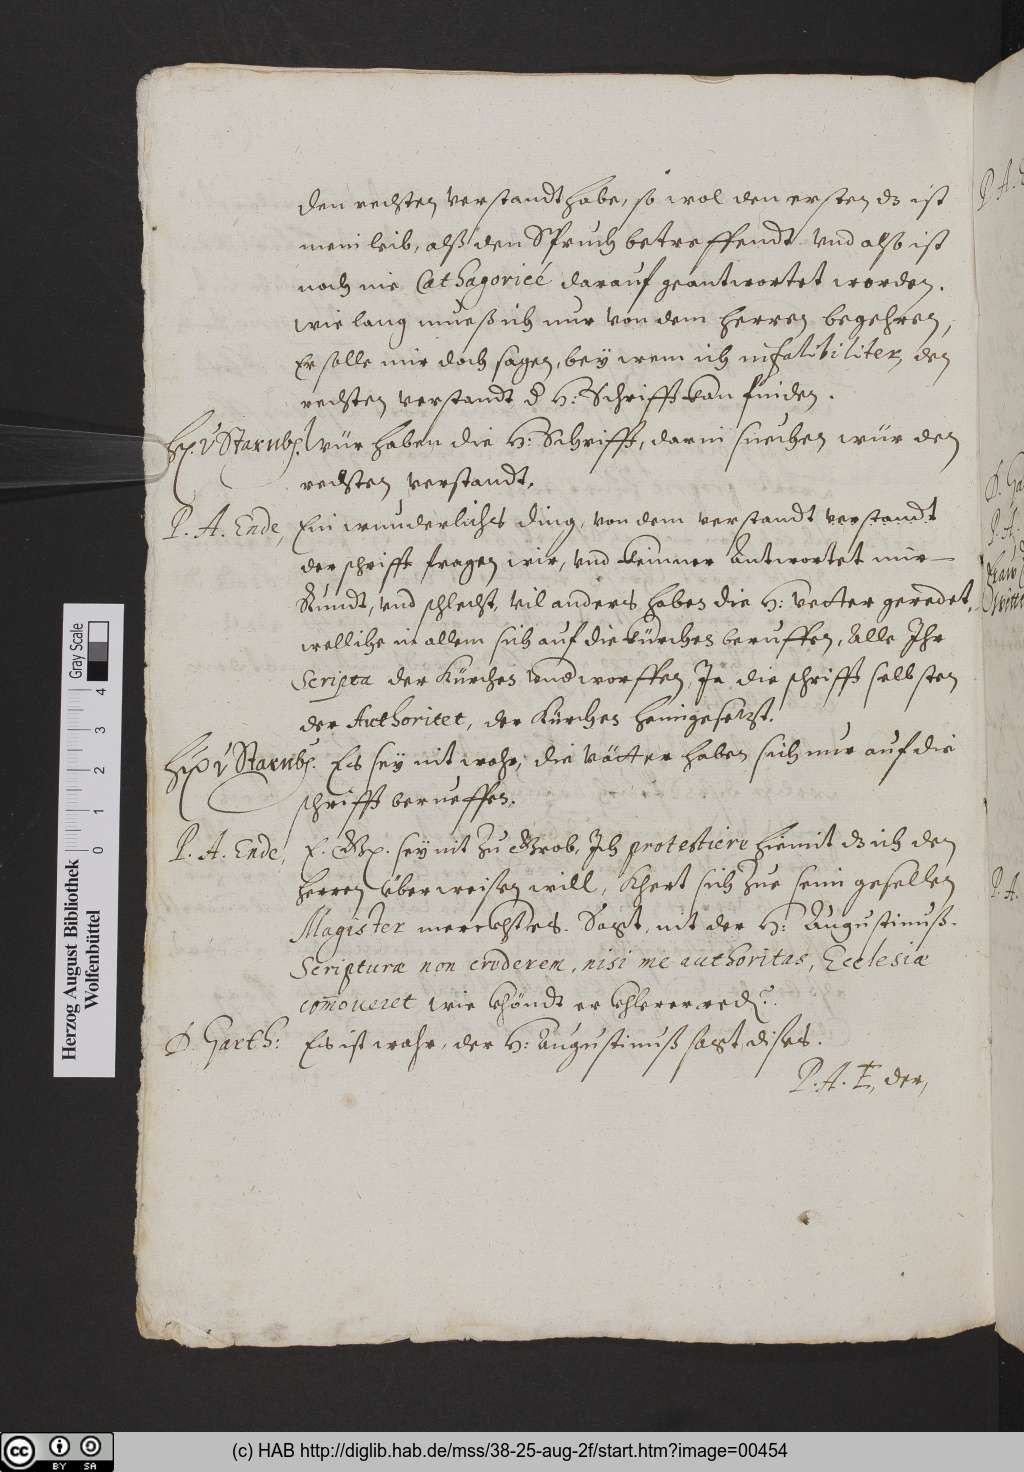 den rechten verstandt habe, so wol den ersten dz ist
mein leib, alß den Spruch betreffendt. Vnd also ist
noch nie Cathagoricé darauf geantwortet worden.
wie lang mueß ich nur von dem herren begehren,
Er solle mir doch sagen, bey wem ich infalibiliter den
rechten verstandt d H: Schrifft kan finden.
v Starnbg. Wür haben die H: Schrifft, darin suechen wür den
rechten verstandt.
P. A. Ende, Ein wunderliches ding, von dem verstandt verstandt
der schrifft fragen wir, vnd keinner Antwortet mir
Rundt, vnd schlecht, vil anders haben die H: vetter geredet,
welliche in allem sich auf die kürchen beruffen, Alle Ihr
Scripta der Kürchen vnderworffen, Ja die schrifft selbsten
der Authoritet, der Kürchen heimgesetzt.
v Starnbg. Es sey nit wahr, die vätter haben sich nur auf die
schrifft berueffen.
P. A. Ende, E. Gn. sey nit zu Grob, Ich protestiere hiemit dz ich den
herren überweisen will, Khert sich zue seim gesellen
Magister merckht es. Sagt, nit der H: Augustinuß.
Scripturæ non crederem, nisi me authoritas, Ecclesiæ
com̄oueret wie khöndt er khlerer red?
D. Garth: Es ist wahr, der H: Augustinuß sagt dises.
P. A. E, der,
P. A.
D. Ga
P. A.
P. A.
Herzog August Bibliothek
Wolfenbüttel
Gray Scale
0 1 2 3 4
cc BY SA
(c) HAB http://diglib.hab.de/mss/38-25-aug-2f/start.htm?image=00454